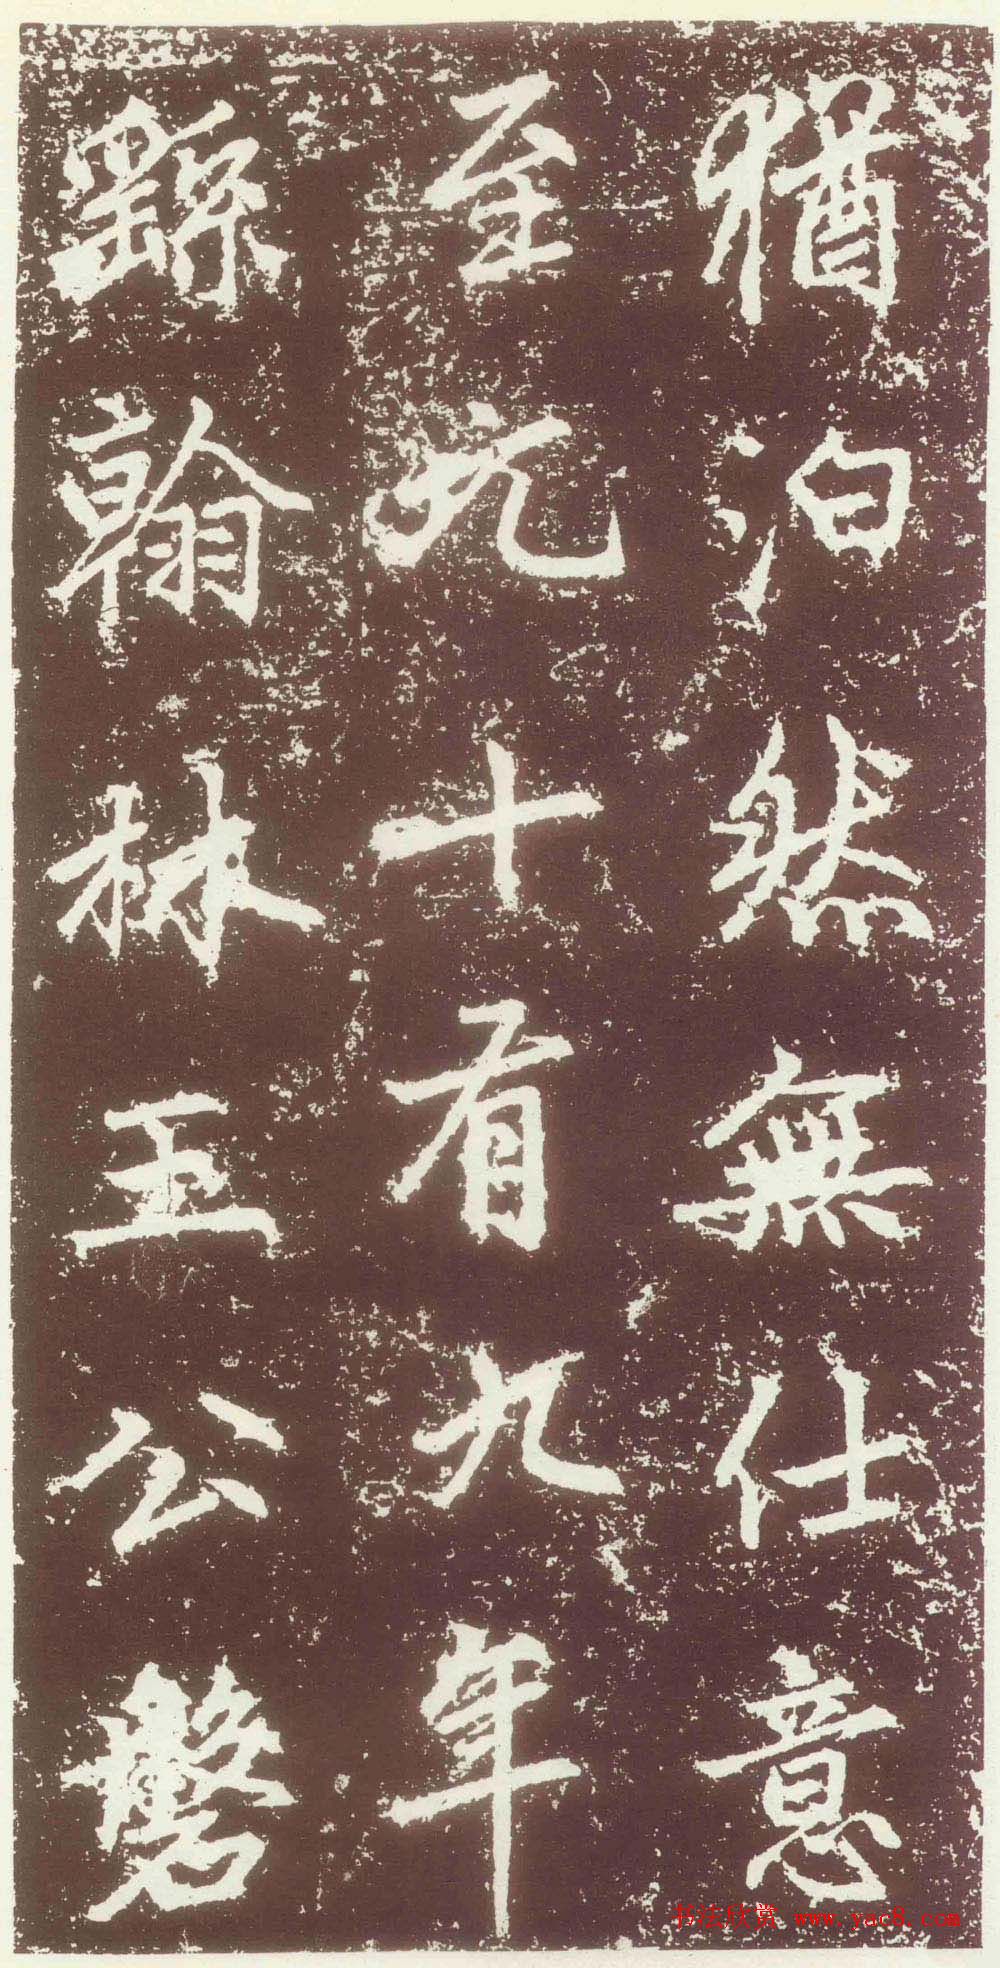 猶泊然無仕意
至元十有九年
繇翰林王公磐
书法欣赏 www.yac8.com